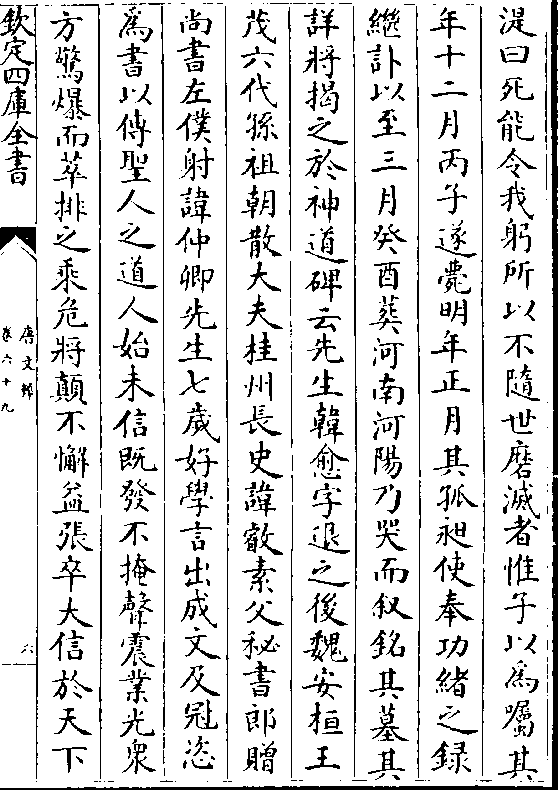 湜曰死能令我躬所以不隨世磨滅者惟子以爲囑其
年十二月丙子遂薨明年正月其孤昶使奉功緒之録
繼訃以至三月癸酉葬河南河陽乃哭而叙銘其墓其
詳將揭之於神道碑云先生韓愈字退之後魏安桓王
茂六代孫祖朝散大夫桂州長史諱叡素父秘書郎贈
尚書左僕射諱仲卿先生七歲好學言出成文及冠恣
爲書以傳聖人之道人始未信既發不掩聲震業光衆
方驚爆而萃排之乘危將顛不懈益張卒大信於天下
欽定四庫全書
唐文粹
卷六十九
六